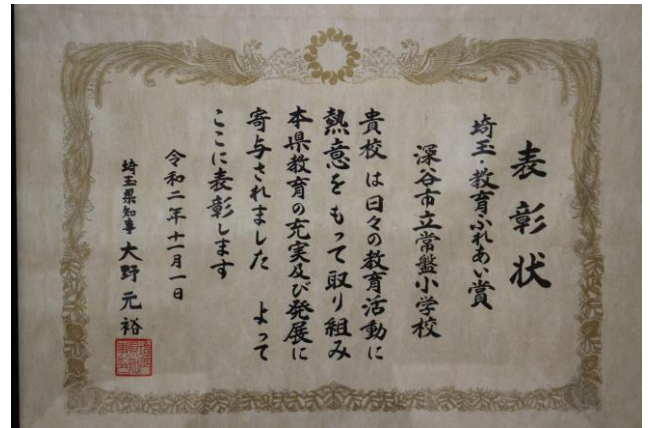 表彰状
埼玉・教育ふれあい賞
深谷市立常盤小学校
貴校は日々の教育活動に
熱意をもって取り組み
本県教育の充実及び発展に
寄与されました よって
ここに表彰します
令和二年十一月一日
埼玉県知事 大野元裕